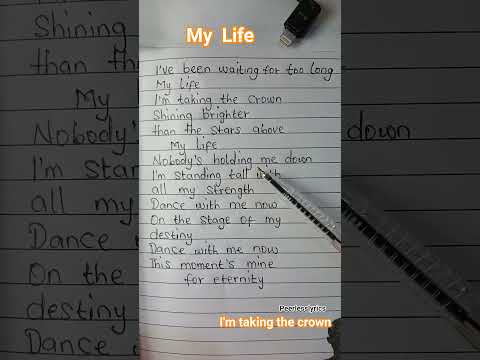 My Life
I've been waiting for too long
My Life
I'm taking the crown
Shining brighter
than the stars above
My Life
Nobody's holding me down
I'm standing tall with
all my strength
Dance with me now
On the stage of my
destiny
Dance with me now
This moment's mine
for eternity
Peerlesslyrics
I'm taking the crown
Shining
than the
My
Nobody's
down
I'm Stand
all my
Dance
On the
destiny
Dance